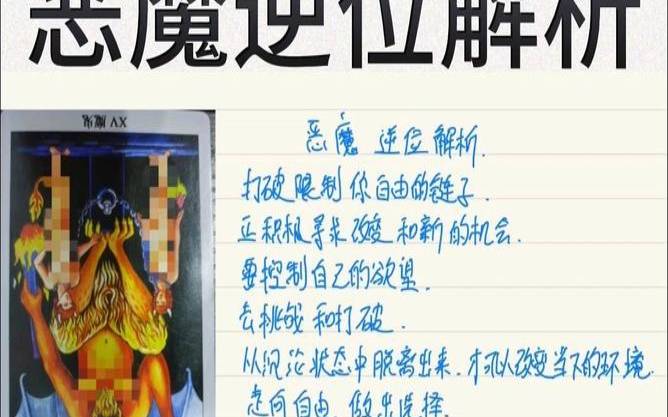 恶魔逆位解析
XV 魔鬼
恶魔 逆位解析.
打破限制你自由的链子.
正积极寻求改变和新的机会.
要控制自己的欲望.
去挑战和打破.
从沉沦状态中脱离出来,才可以改变当下的环境.
走向自由,做出选择.